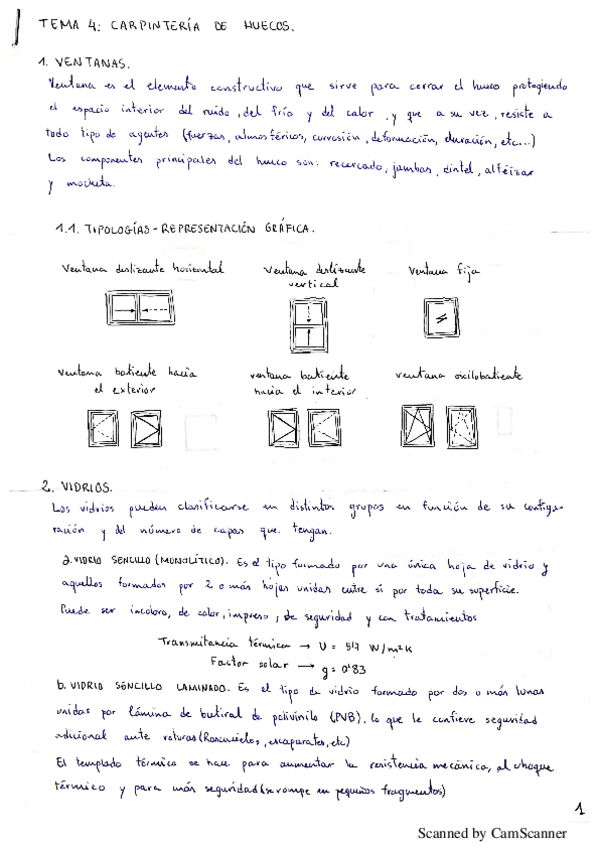 TEMA 4: CARPINTERÍA DE HUECOS.
1. VENTANAS.
Ventana es el elemento constructivo que sirve para cerrar el hueco protegiendo
el espacio interior del ruido, del frío y del calor, y que a su vez, resiste a
todo tipo de agentes (fuerzas, atmosféricos, corrosión, deformación, duración, etc...)
Los componentes principales del hueco son: recercado, jambas, dintel, alféizar
y mocheta.
1.1. TIPOLOGÍAS - REPRESENTACIÓN GRÁFICA.
Ventana deslizante horizontal
Ventana deslizante
vertical
Ventana fija
Ventana batiente hacia
el exterior
ventana batiente
hacia el interior
ventana oscilobatiente
2. VIDRIOS.
Los vidrios pueden clasificarse en distintos grupos en función de su configu-
ración y del número de capas que tengan.
a. VIDRIO SENCILLO (MONOLÍTICO). Es el tipo formado por una única hoja de vidrio y
aquellos formados por 2 o más hojas unidas entre sí por toda su superficie.
Puede ser incoloro, de color, impreso, de seguridad y con tratamientos
Transmitancia térmica → U = 5'7 W/m²K
Factor solar → g = 0'83
b. VIDRIO SENCILLO LAMINADO. Es el tipo de vidrio formado por dos o más lunas
unidas por lámina de butiral de polivinilo (PVB), lo que le confiere seguridad
adicional ante roturas (Rascacielos, escaparates, etc)
El templado térmico se hace para aumentar la resistencia mecánica, al choque
térmico y para más seguridad (se rompe en pequeños fragmentos)
1
Scanned by CamScanner